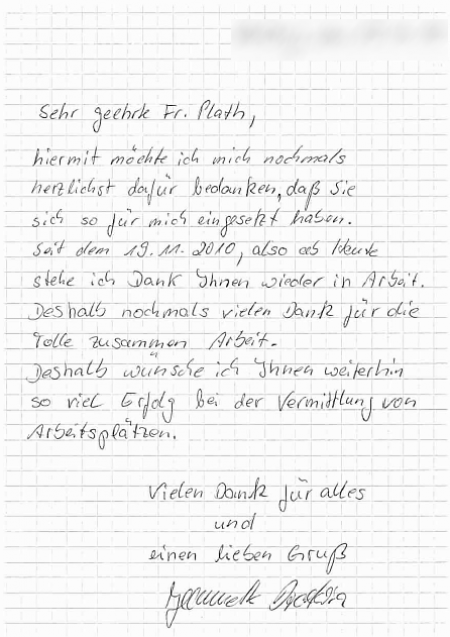 Sehr geehrte Fr. Plath,
hiermit möchte ich mich nochmals
herzlichst dafür bedanken, daß Sie
sich so für mich eingesetzt haben.
Seit dem 19.11.2010, also ab Heute
stehe ich Dank Ihnen wieder in Arbeit.
Deshalb nochmals vielen Dank für die
Tolle zusammen Arbeit.
Deshalb wünsche ich Ihnen weiterhin
so viel Erfolg bei der Vermittlung von
Arbeitsplätzen.
Vielen Dank für alles
und
einen lieben Gruß